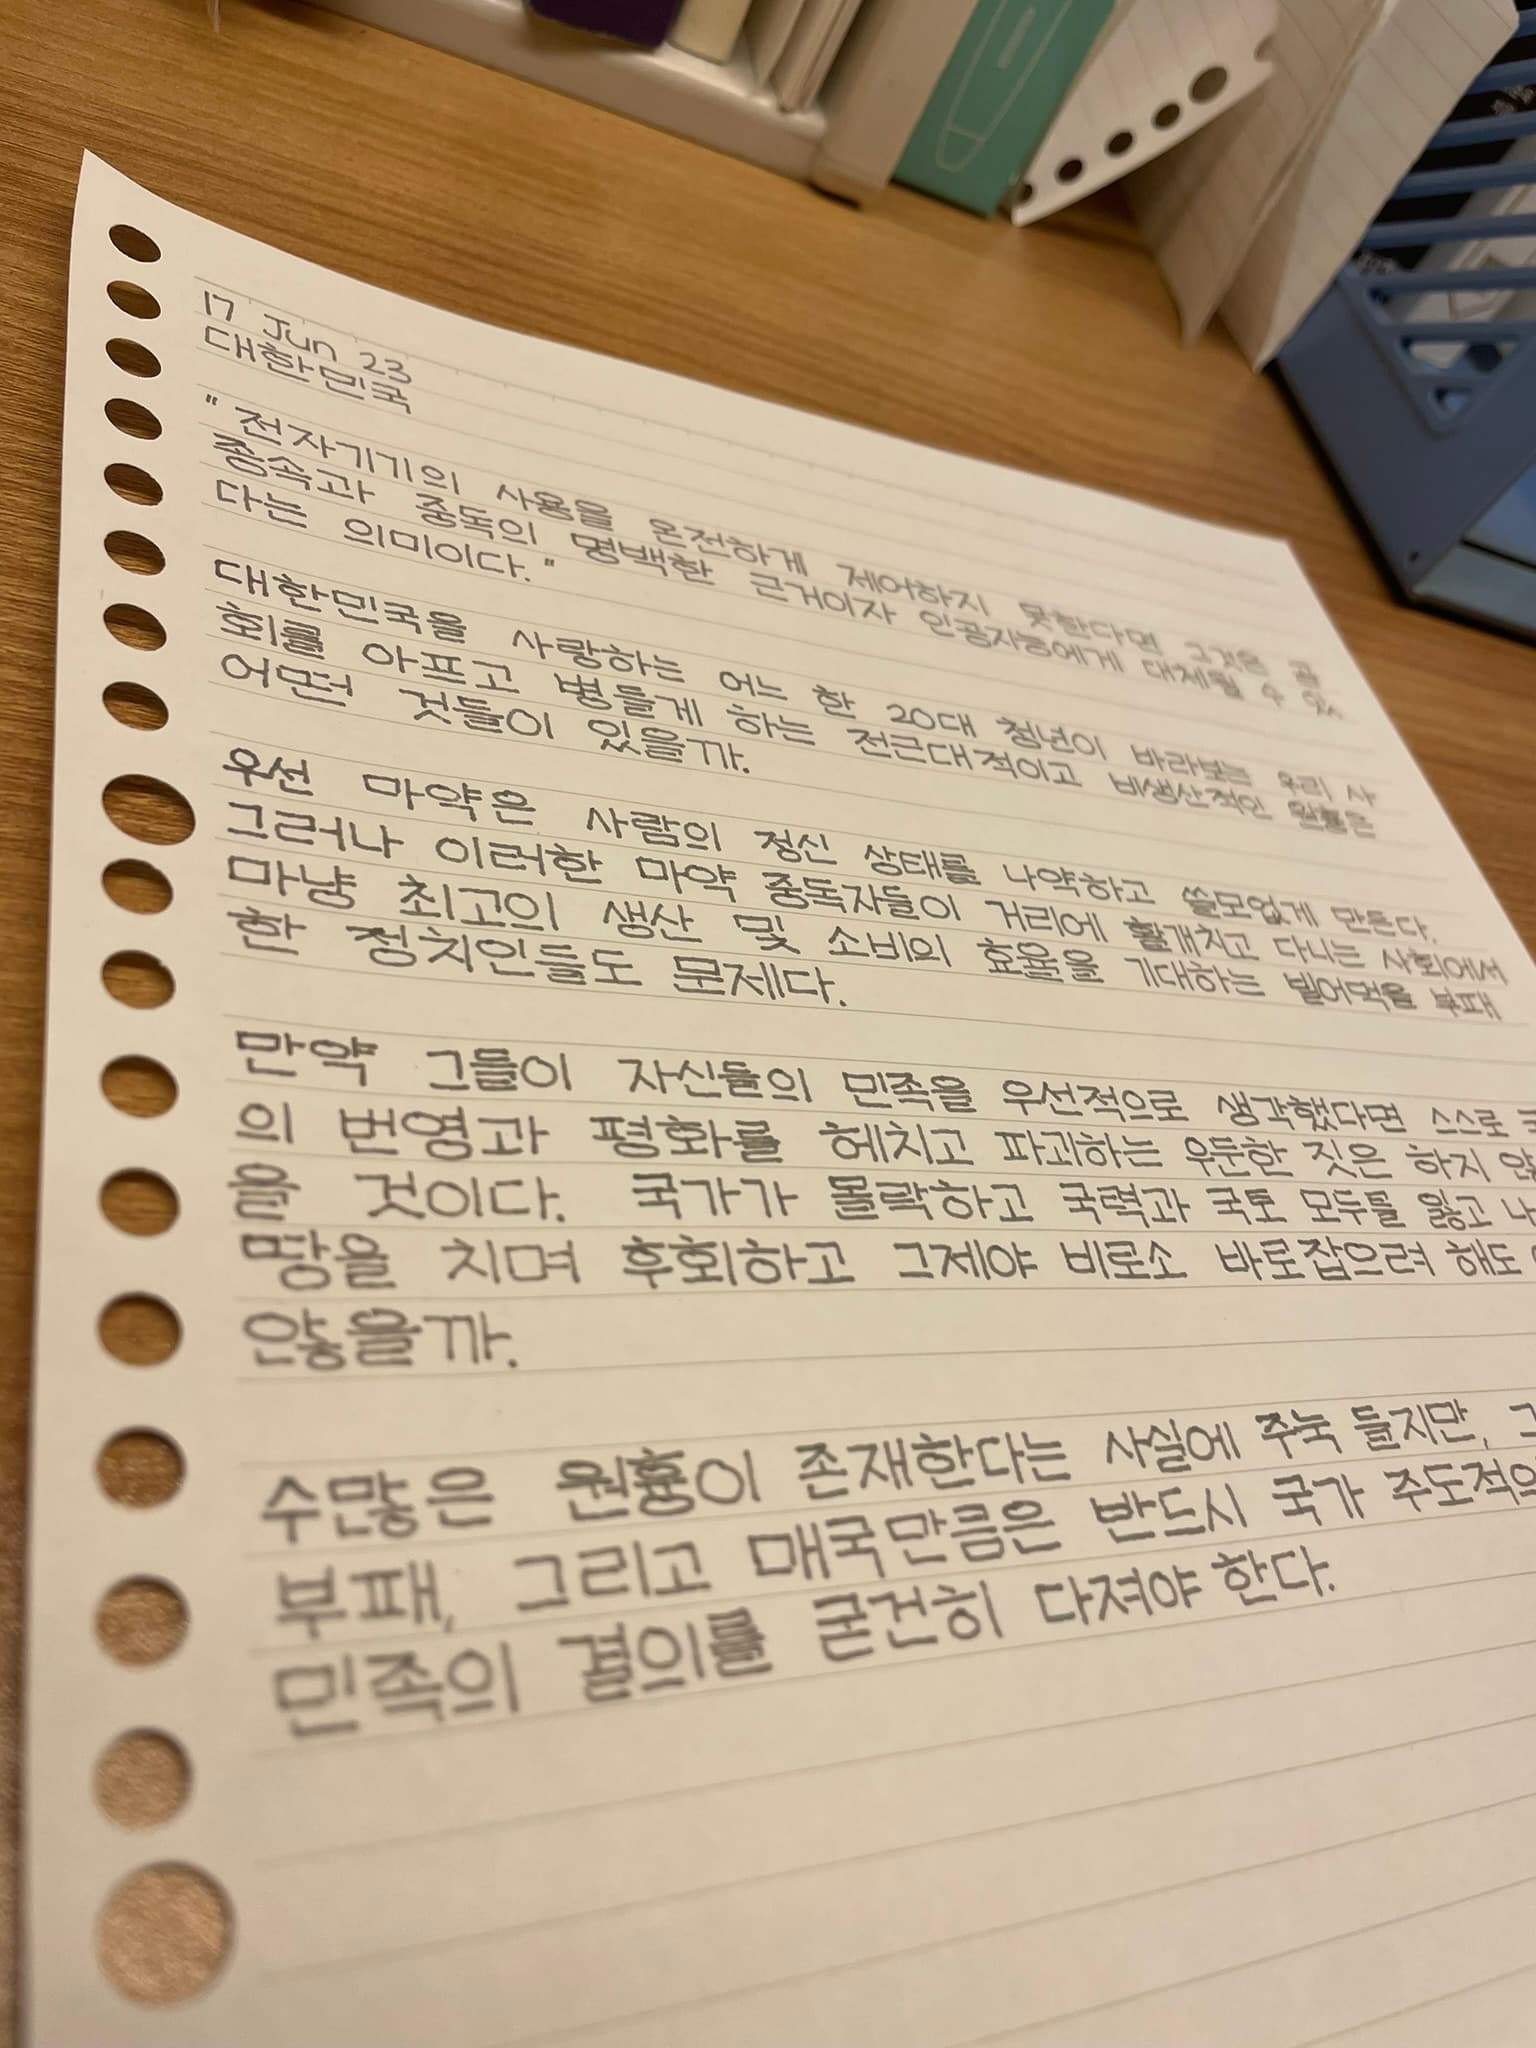 17 Jun 23
대한민국
"전자기기의 사용을 온전하게 제어하지 못한다면 그것은 곧
종속과 중독의 명백한 근거이자 인공지능에게 대체될 수 있
다는 의미이다."
대한민국을 사랑하는 어느 한 20대 청년이 바라보는 우리 사
회를 아프고 병들게 하는 전근대적이고 비생산적인 원흉은
어떤 것들이 있을까.
우선 마약은 사람의 정신 상태를 나약하고 쓸모없게 만든다.
그러나 이러한 마약 중독자들이 거리에 활개치고 다니는 사회에서
마냥 최고의 생산 및 소비의 효율을 기대하는 빌어먹을 부패
한 정치인들도 문제다.
만약 그들이 자신들의 민족을 우선적으로 생각했다면 스스로
의 번영과 평화를 헤치고 파괴하는 우둔한 짓은 하지
을 것이다. 국가가 몰락하고 국력과 국토 모두를 잃고
땅을 치며 후회하고 그제야 비로소 바로잡으려 해도
않을까.
수많은 원흉이 존재한다는 사실에 주눅 들지만,
부패, 그리고 매국만큼은 반드시 국가 주도적
민족의 결의를 굳건히 다져야 한다.